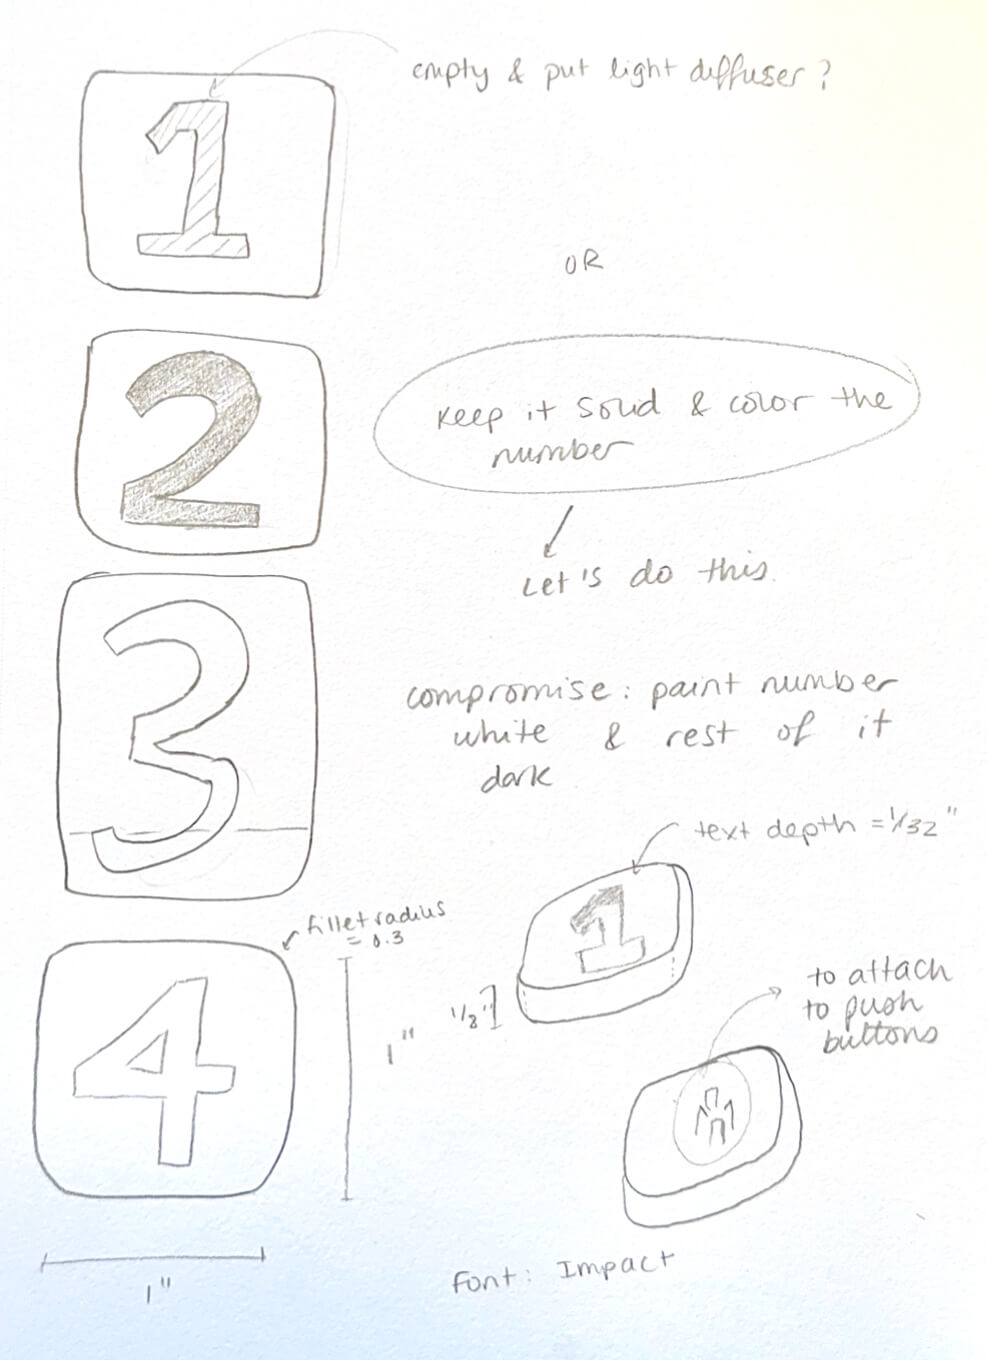 empty & put light diffuser?
1
OR
2
Keep it solid & color the
number
Let's do this.
3
compromise: paint number
white & rest of it
dark
text depth = 1/32"
1
fillet radius
= 0.3
4
1/8"
1"
to attach
to push
buttons
1"
Font: Impact